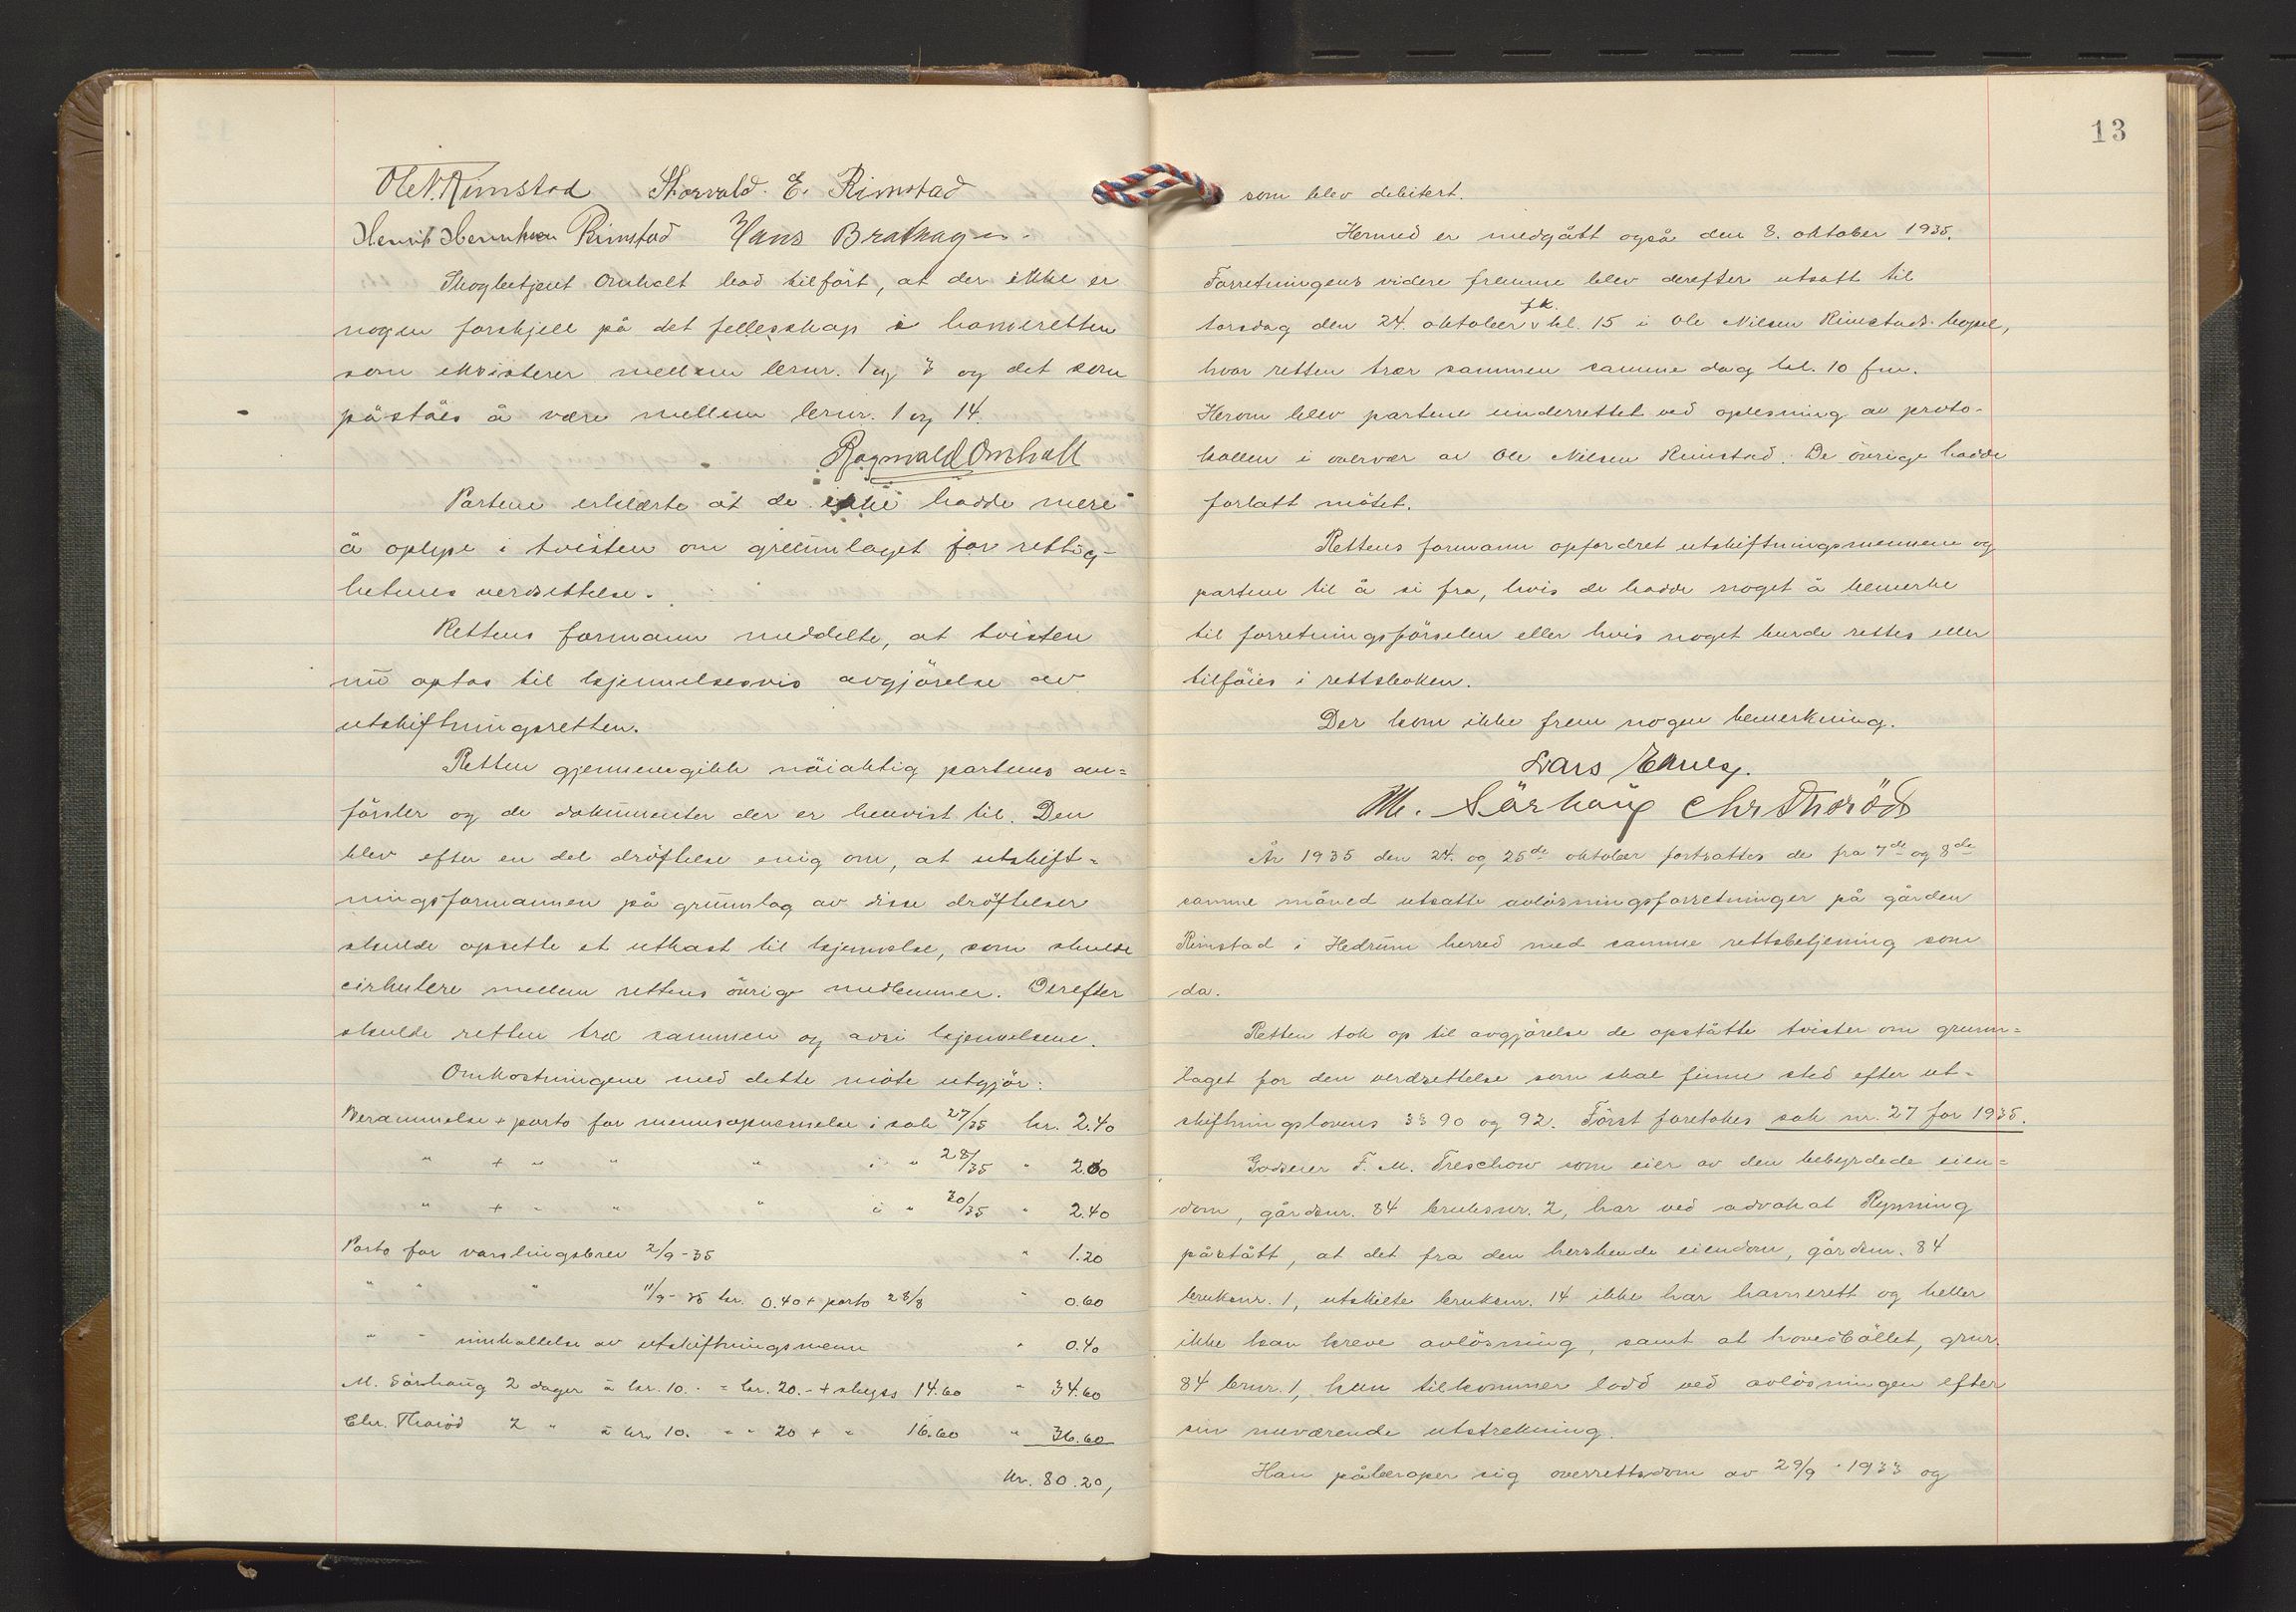 Ole N. Rimstad Thorvald. E. Rimstad
Henrik Henriksen Rimstad Hans Brathagen
Skogbetjent Omholt bad tilført, at der ikke er
nogen forskjell på det fellesskap i havneretten
som eksisterer mellem brnr. 1 og 3 og det som
påståes å være mellem brnr. 1 og 14.
Ragnvald Omholt
Partene erklærte at de ikke hadde mere
å oplyse i tvisten om grunnlaget for rettig-
hetenes verdsettelse.
Rettens formann meddelte, at tvisten
nu optas til kjennelsesvis avgjörelse av
utskiftningsretten.
Retten gjennemgikk nöiaktig partenes an=
försler og de dokumenter der er henvist til. Den
blev efter en del dröftelse enig om, at utskift=
ningsformannen på grunnlag av disse dröftelser
skulde opsette et utkast til kjennelse, som skulde
cirkulere mellem rettens övrige medlemmer. Derefter
skulde retten træ sammen og avsi kjennelsene.
Omkostningene med dette möte utgjör:
Berammelse + porto for mennsopnevnelse i sak 27/35 kr. 2.40
" + " " " i " 28/35 " 2.00
" + " " " i " 30/35 " 2.40
Porto for varslingsbrev 2/9-35 " 1.20
" " " 11/9-35 kr. 0.40 + porto 28/8 " 0.60
" " innkallelse av utskiftningsmenn " 0.40
M. Sörhaug 2 dager à kr. 10.- = kr. 20.- + skyss 14.60 " 34.60
Chr. Thoröd 2 " à kr. 10. " " 20 + " 16.60 " 36.60
kr. 80.20,
13
som blev debitert.
Hermed er medgått også den 8. oktober 1935.
Forretningens videre fremme blev derefter utsatt til
fk.
torsdag den 24. oktober v kl. 15 i Ole Nilsen Rimstads bopel,
hvor retten trær sammen samme dag kl. 10 fm.
Herom blev partene underrettet ved oplesning av proto-
kollen i overvær av Ole Nilsen Rimstad. De övrige hadde
forlatt mötet.
Rettens formann opfordret utskiftningsmennene og
partene til å si fra, hvis de hadde noget å bemerke
til forretningsförselen eller hvis noget burde rettes eller
tilföies i rettsboken.
Der kom ikke frem nogen bemerkning.
Lars
M. Sörhaug Chr Thoröd
År 1935 den 24. og 25de oktober fortsattes de fra 7de og 8de
samme måned utsatte avlösningsforretninger på gården
Rimstad i Hedrum herred med samme rettsbetjening som
da.
Retten tok op til avgjörelse de opståtte tvister om grunn=
laget for den verdsettelse som skal finne sted efter ut=
skiftningslovens §§ 90 og 92. Först foretokes sak nr. 27 for 1935.
Godseier F. M. Treschow som eier av den bebyrdede eien=
dom, gårdsnr. 84 bruksnr. 2, har ved advokat Rynning
påstått, at det fra den herskende eiendom, gårdsnr. 84
bruksnr. 1, utskilte bruksnr. 14 ikke har havnerett og heller
ikke kan kreve avlösning, samt at hovedbölet, gnr.
84 brnr. 1, kun tilkommer lodd ved avlösningen efter
sin nuværende utstrekning.
Han påberoper sig overrettsdom av 29/9 - 1933 og